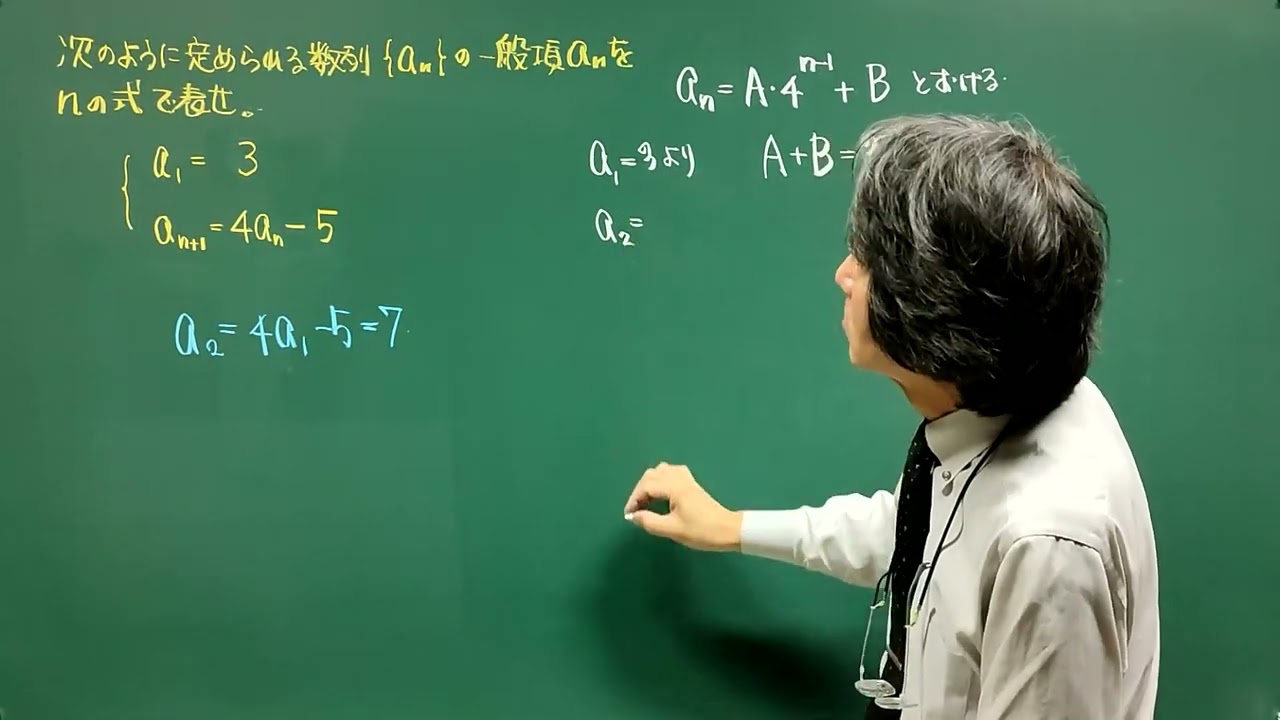 次のように定められる数列{aₙ}の一般項aₙを
nの式で表せ。
a₁ = 3
aₙ₊₁ = 4aₙ − 5
a₂ = 4a₁ − 5 = 7.
aₙ = A・4ⁿ⁻¹ + B とおける.
a₁ = 3より A + B =
a₂ =